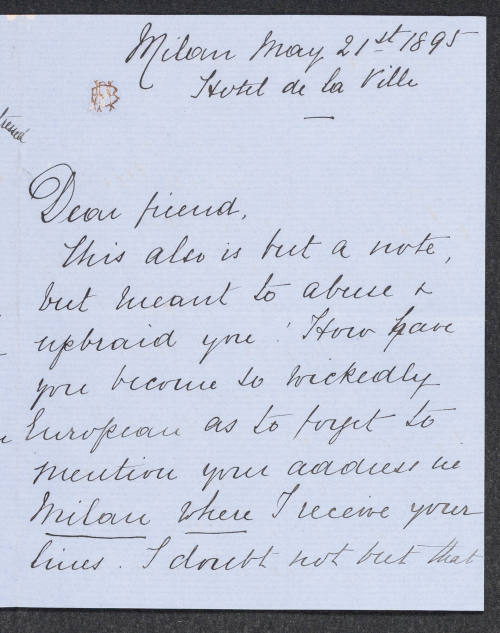 Milan May 21st 1895
Hotel de la Ville
Dear friend,
This also is but a note,
but meant to abuse &
upbraid you! How have
you become so wickedly
European as to forget to
mention your address in
Milan where I receive your
lines. I doubt not but that